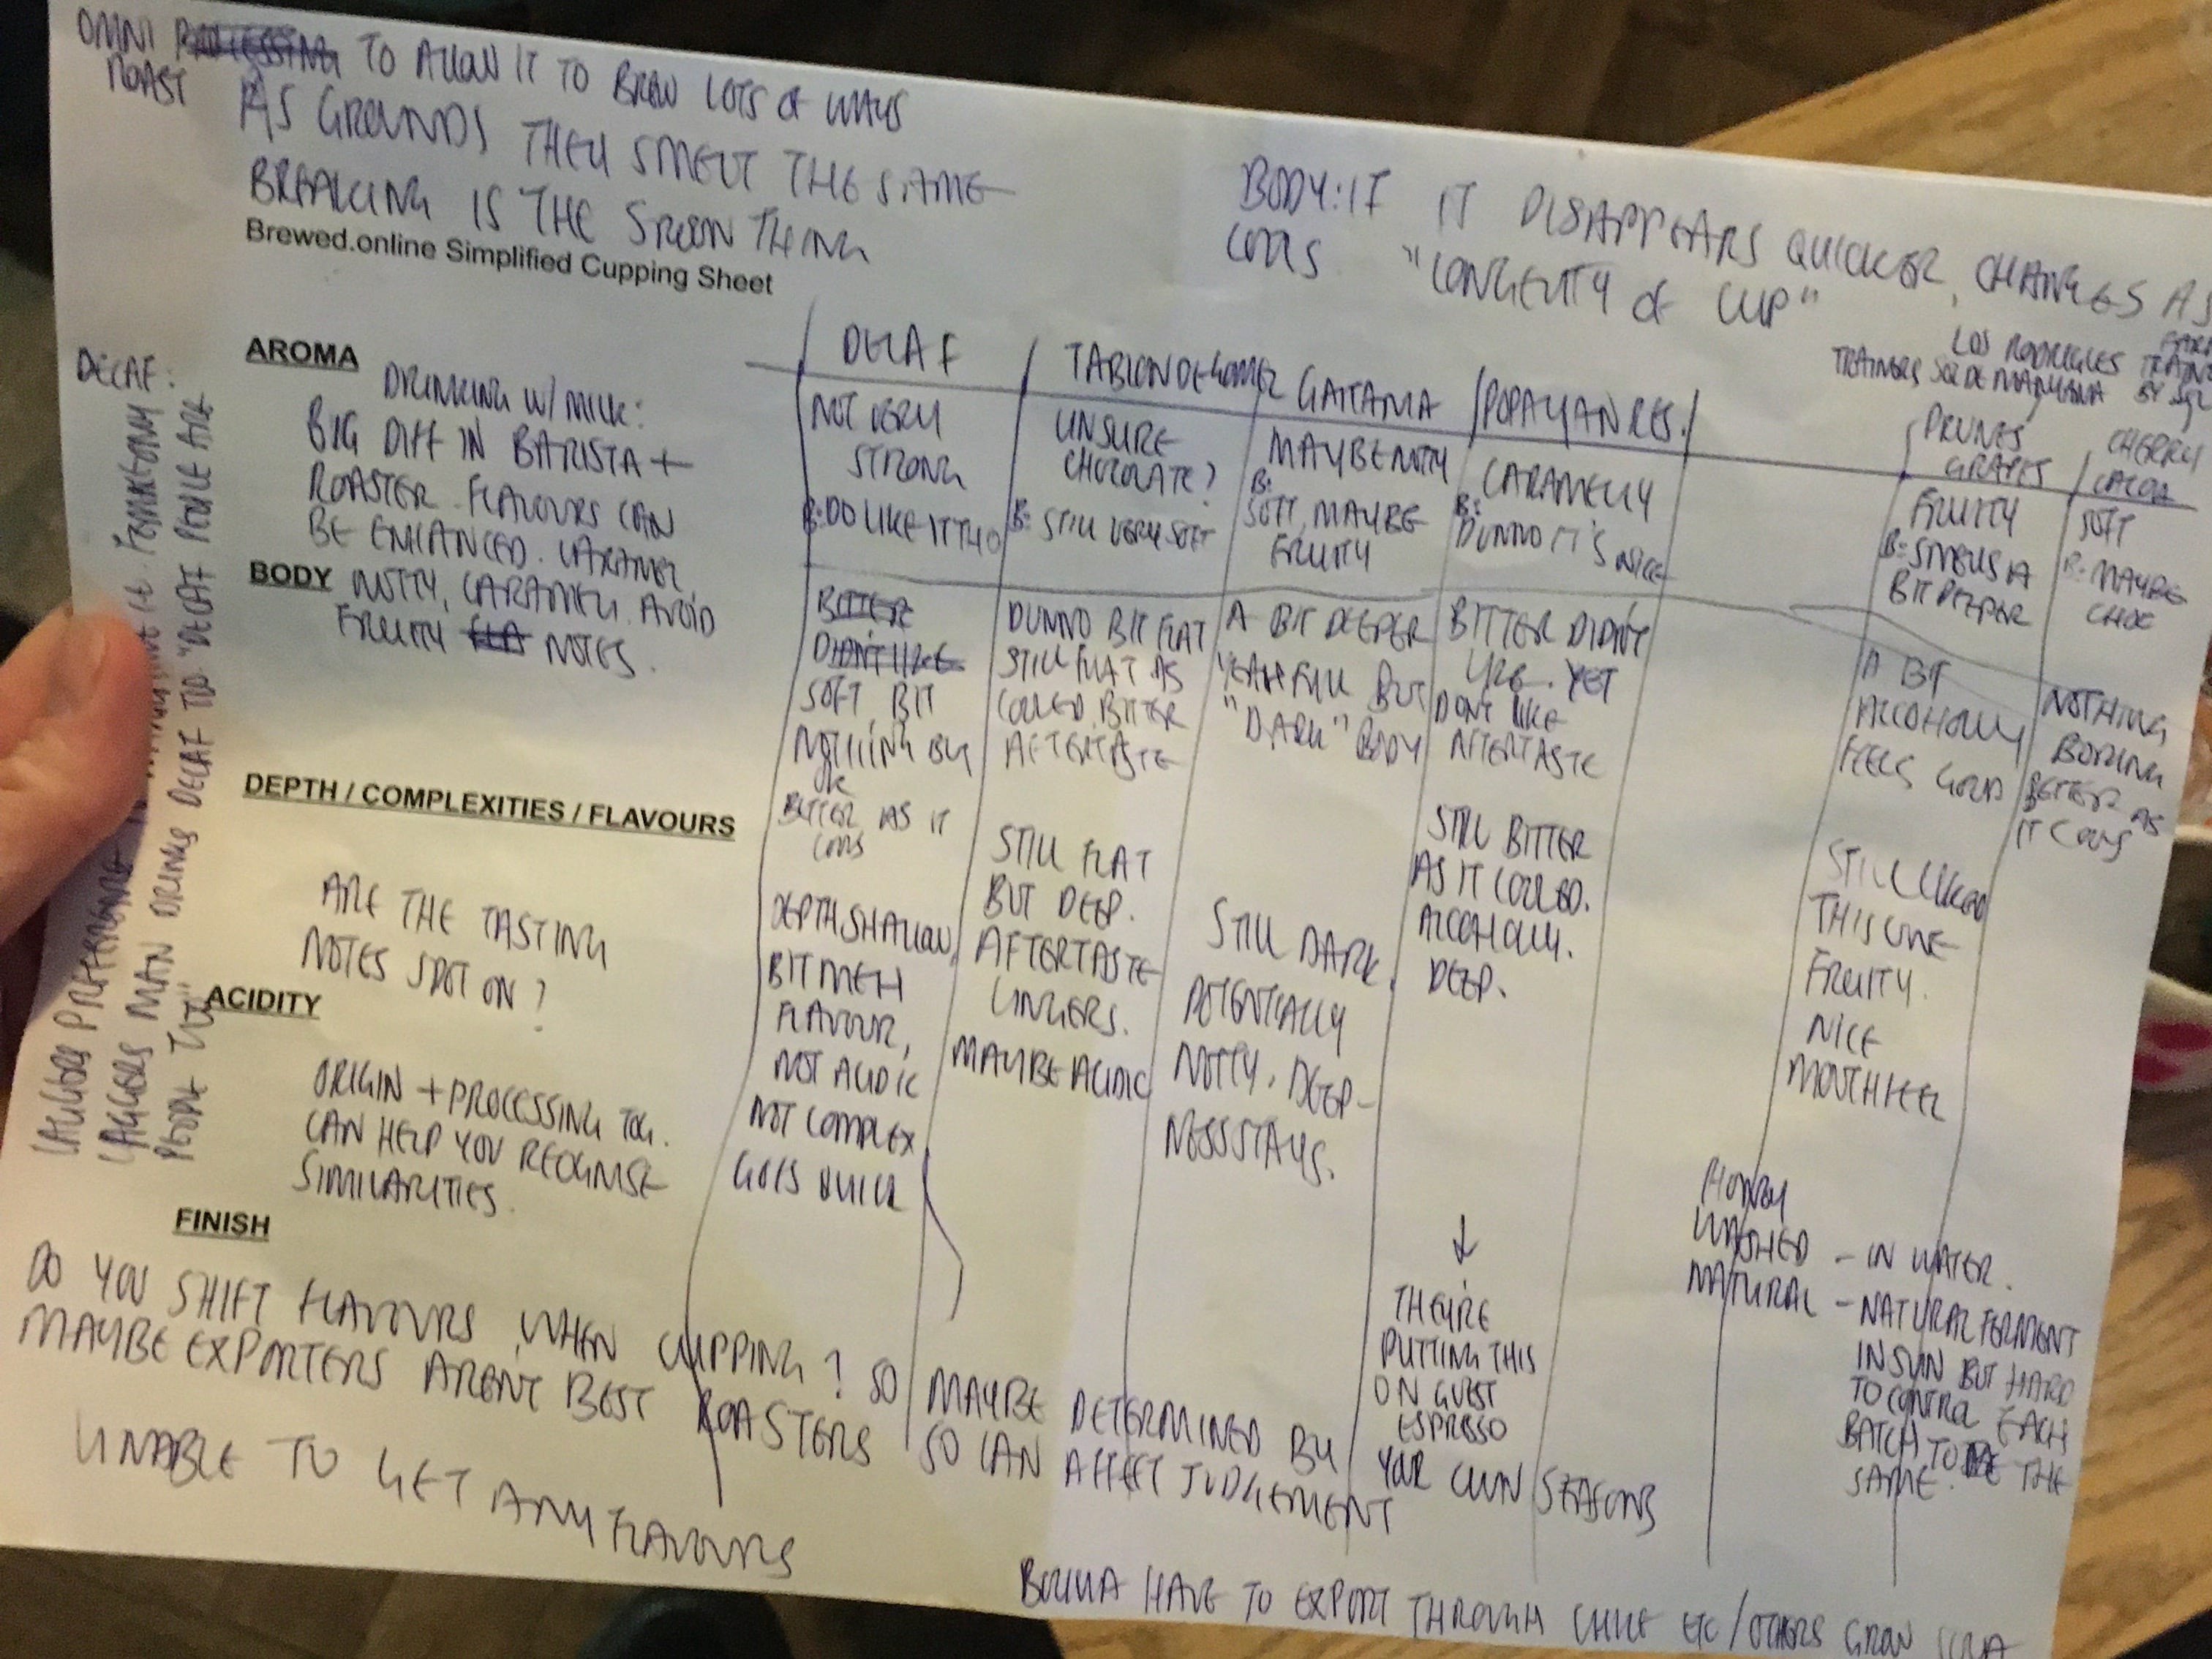 OMNI TO ALLOW IT TO BREW LOTS OF WAYS
ROAST
AS GROUNDS THEY SMELT THE SAME
BREAKING IS THE SPOON THING
Brewed.online Simplified Cupping Sheet
BODY: IF IT DISAPPEARS QUICKER, CHANGES AS
COOLS "LONGEVITY OF CUP"
LOS RODRIGUES
TRAINERS SOL DE MANANA BY SOL
DECAF:
AROMA
DRINKING W/ MILK:
BIG DIFF IN BARISTA +
ROASTER. FLAVOURS CAN
BE ENHANCED. CARAMEL
BODY
NUTTY, CARAMELLY. AVOID
FRUITY NOTES.
DEPTH / COMPLEXITIES / FLAVOURS
ARE THE TASTING
NOTES SPOT ON?
ACIDITY
ORIGIN + PROCESSING TOG.
CAN HELP YOU RECOGNISE
SIMILARITIES.
FINISH
MAN DRINKS DECAF TO "DECAF PEOPLE ARE
PEOPLE TOO"
DECAF
NOT VERY
STRONG
B: DO LIKE IT THO
BITTER
DIDN'T LIKE
SOFT, BIT
NOTHING BUT
OK
BITTER AS IT
COOLS
DEPTH SHALLOW,
BIT MEH
FLAVOUR,
NOT ACIDIC
NOT COMPLEX
GOES QUICK
TABLON DE GOMEZ
UNSURE
CHOCOLATE?
B: STILL VERY SOFT
DUNNO BIT FLAT
STILL FLAT AS
COOLED, BITTER
AFTERTASTE
STILL FLAT
BUT DEEP.
AFTERTASTE
LINGERS.
MAYBE ACIDIC
GAITAMA
MAYBE NUTTY
B:
SOFT, MAYBE
FRUITY
A BIT DEEPER
YEAH FULL BUT
"DARK" BODY
STILL DARK,
POTENTIALLY
NUTTY, DEEP-
NESS STAYS.
POPAYAN RES.
CARAMELLY
B:
DUNNO IT'S NICE
BITTER DIDN'T
LIKE. YET
DON'T LIKE
AFTERTASTE
STILL BITTER
AS IT COOLED.
ALCOHOLLY.
DEEP.
THEY'RE
PUTTING THIS
ON GUEST
ESPRESSO
PRUNES
GRAPES
FRUITY
B: SMELLS A
BIT DEEPER
A BIT
ALCOHOLLY
FEELS GOOD
STILL LIKED
THIS ONE
FRUITY.
NICE
MOUTHFEEL
CHERRY
CACAO
SOFT
B: MAYBE
CHOC
NOTHING
BORING
BETTER AS
IT COOLS
HONEY
WASHED - IN WATER.
NATURAL - NATURAL FERMENT
IN SUN BUT HARD
TO CONTROL EACH
BATCH TO BE THE
SAME.
DO YOU SHIFT FLAVOURS WHEN CUPPING? SO MAYBE DETERMINED BY YOUR OWN SEASONS
MAYBE EXPORTERS AREN'T BEST ROASTERS SO CAN AFFECT JUDGEMENT
UNABLE TO GET ANY FLAVOURS
HAVE TO EXPORT THROUGH CHILE ETC / OTHERS GROW